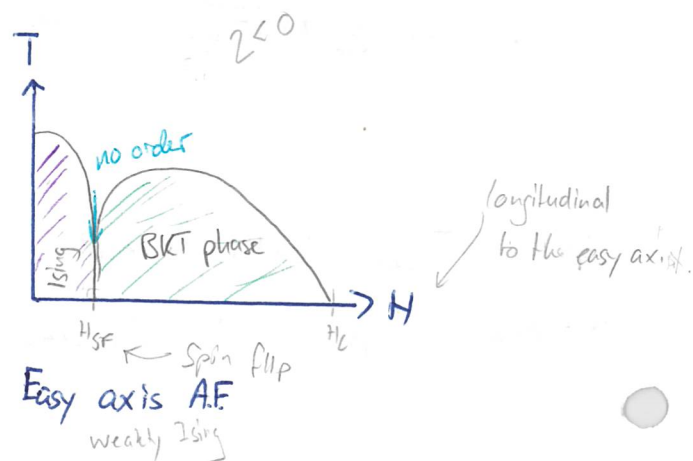 2<0
T
no order
Ising
BKT phase
longitudinal
to the easy axis.
H
H_SF
H_c
Spin flip
Easy axis A.F.
weakly Ising